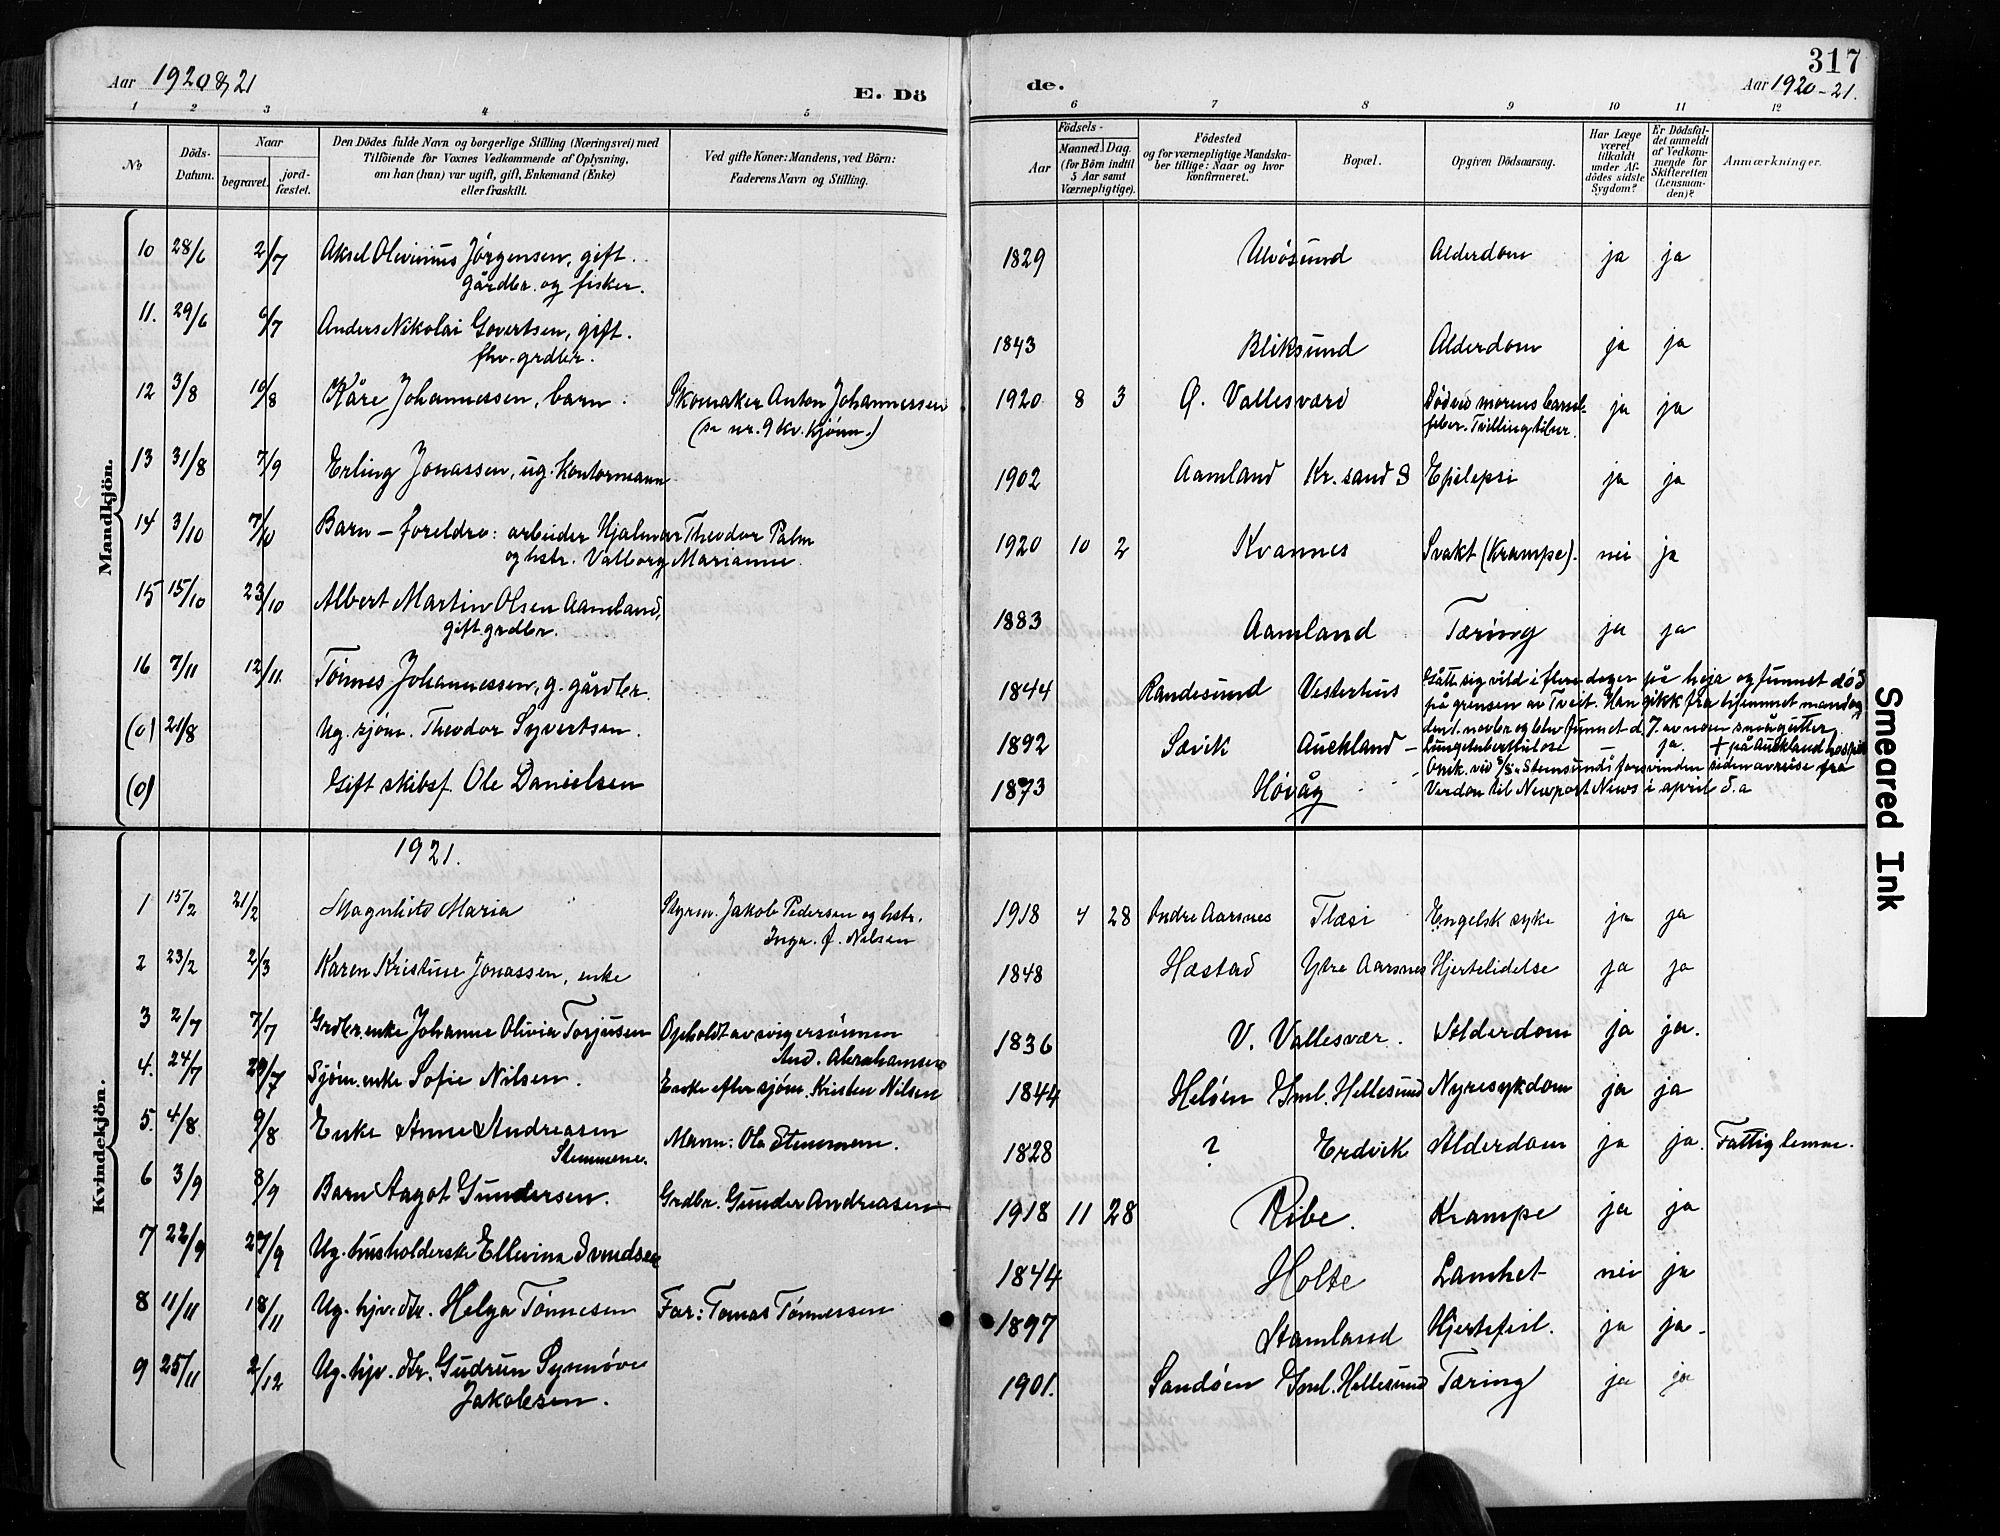 317
Aar 1920 & 21
E. Dö
de.
Aar 1920-21.
1 2 3 4 5 6 7 8 9 10 11 12
No
Döds-Datum.
Naar
begravet.
jord-fæstet.
Den Dödes fulde Navn og borgerlige Stilling (Næringsvei) med
Tilföiende for Voxnes Vedkommende af Oplysning,
om han (hun) var ugift, gift, Enkemand (Enke)
eller fraskilt.
Ved gifte Koner: Mandens, ved Börn:
Faderens Navn og Stilling.
Födsels-
Aar
Maaned. Dag.
(for Börn indtil
5 Aar samt
Værnepligtige).
Födested
og for værnepligtige Mandska-
ber tillige: Naar og hvor
konfirmeret.
Bopæl.
Opgiven Dödsaarsag.
Har Læge
været
tilkaldt
under Af-
dödes sidste
Sygdom?
Er Dödsfal-
det anmeldt
af Vedkom-
mende for
Skifteretten
(Lensman-
den)?
Anmærkninger.
Mandkjön.
10 28/6 2/7 Aksel Olivinius Jörgensen, gift. 1829 Ulvøsund Alderdom ja ja
gårdbr. og fisker.
11. 29/6 6/7 Anders Nikolai Govertsen, gift. 1843 Bliksund Alderdom ja ja
fhv. grdbr.
12 3/8 10/8 Kåre Johannessen, barn. Skomaker Anton Johannessen 1920 8 3 Ø. Vallesværd Død ved morens barsel- ja ja
(se nr. 9 kv. kjönn.) feber. Tvillingtilser.
13 31/8 7/9 Erling Jonassen, ug. kontormann 1902 Aamland Kr. sand S Epilepsi ja ja
14 3/10 7/10 Barn – foreldre: arbeider Hjalmar Theodor Palm 1920 10 2 Kvannes Svakt (Krampe). nei ja
og hstr. Valborg Marianne.
15 15/10 23/10 Albert Martin Olsen Aamland, 1883 Aamland Tæring ja ja
gift. grdbr.
16 7/11 12/11. Tönnes Johannessen, g. gårdbr. 1844 Randesund Vesterhus Gått sig vild i flere dager på heia og funnet död
på grensen av Tveit. Han gikk fra hjemmet mandag
den 1. novbr og blev funnet d. 7. av noen smågutter.
(0) 21/8 Ug. sjöm. Theodor Syvertsen. 1892 Sævik Auckland – Lungetuberkulose – ja. + på Auckland hospit
(0) Gift skibsf Ole Danielsen 1873 Høvåg Omk. ved S/S. Stemsund i forsvinden siden avreise fra
Verdon til Newport News i april d. a
Kvindekjön.
1921.
1 15/2 21/2 Magnhild Maria Styrm. Jakob Pedersen og hstr. 1918 4 28 Indre Aarsnes Tlæsi Engelsk syke ja ja
Inga. f. Nilsen
2 23/2 2/3 Karen Kristine Jonassen, enke 1848 Hæstad Ytre Aarsnes Hjertelidelse ja ja
3 2/7 7/7 Grdbr. enke Johanne Olivia Torjusen Opholdt av svigersønnen 1836 V. Vallesvær. Alderdom ja ja.
And. Abrahamsen
4. 24/7 29/7 Sjöm. enke Sofie Nilsen. Enke efter sjöm. Kristen Nilsen 1844 Heløen Gml. Hellesund Nyresykdom ja ja
5. 4/8 9/8 Enke Anne Andreasen Mann: Ole Stemmene. 1828 ? Erdvik Alderdom ja ja. Fattiglemm.
Stemmene.
6 3/9 8/9 Barn Aagot Gundersen. Grdbr. Gunder Andreasen 1918 11 28 Ribe. Krampe ja ja
7 22/9 27/9 Ug. husholderske Ellevine Svendsen 1844 Holte Lamhet nei ja
8 11/11 18/11 Ug. hjv. dtr. Helga Tönnesen Far: Tomas Tönnessen 1897 Stamland Hjertefeil. ja ja
9 25/11 2/12 Ug. hjv. dtr. Gudrun Synnøve 1901. Sandøen Gml. Hellesund Tæring ja ja
Jakobsen.
Smeared Ink